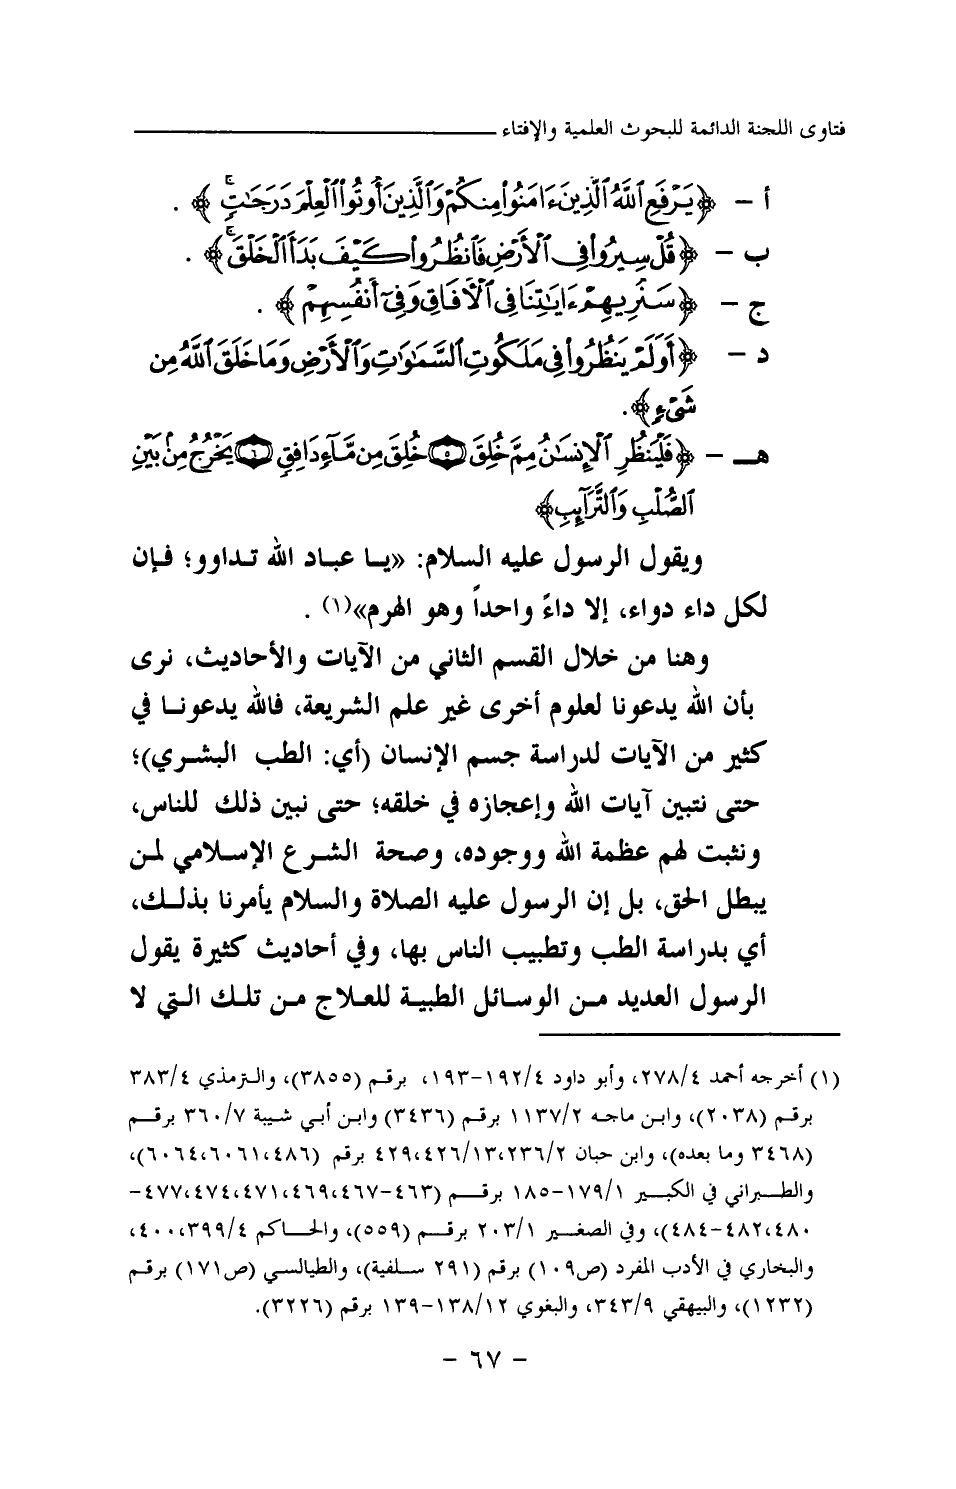 فتاوى اللجنة الدائمة للبحوث العلمية والإفتاء
أ – ﴿يَرْفَعِ ٱللَّهُ ٱلَّذِينَ ءَامَنُوا۟ مِنكُمْ وَٱلَّذِينَ أُوتُوا۟ ٱلْعِلْمَ دَرَجَٰتٍۚ﴾ .
ب – ﴿قُلْ سِيرُوا۟ فِى ٱلْأَرْضِ فَٱنظُرُوا۟ كَيْفَ بَدَأَ ٱلْخَلْقَۚ﴾ .
ج – ﴿سَنُرِيهِمْ ءَايَٰتِنَا فِى ٱلْءَافَاقِ وَفِىٓ أَنفُسِهِمْ﴾ .
د – ﴿أَوَلَمْ يَنظُرُوا۟ فِى مَلَكُوتِ ٱلسَّمَٰوَٰتِ وَٱلْأَرْضِ وَمَا خَلَقَ ٱللَّهُ مِن
شَىْءٍ﴾.
هـ – ﴿فَلْيَنظُرِ ٱلْإِنسَٰنُ مِمَّ خُلِقَ ٥ خُلِقَ مِن مَّآءٍ دَافِقٍ ٦ يَخْرُجُ مِنۢ بَيْنِ
ٱلصُّلْبِ وَٱلتَّرَآئِبِ﴾
ويقول الرسول عليه السلام: «يا عباد الله تداوو؛ فإن
لكل داء دواء، إلا داءً واحداً وهو الهرم»(١) .
وهنا من خلال القسم الثاني من الآيات والأحاديث، نرى
بأن الله يدعونا لعلوم أخرى غير علم الشريعة، فالله يدعونا في
كثير من الآيات لدراسة جسم الإنسان (أي: الطب البشري)؛
حتى نتبين آيات الله وإعجازه في خلقه؛ حتى نبين ذلك للناس،
ونثبت لهم عظمة الله ووجوده، وصحة الشرع الإسلامي لمن
يبطل الحق، بل إن الرسول عليه الصلاة والسلام يأمرنا بذلك،
أي بدراسة الطب وتطبيب الناس بها، وفي أحاديث كثيرة يقول
الرسول العديد من الوسائل الطبية للعلاج من تلك التي لا
(١) أخرجه أحمد ٢٧٨/٤، وأبو داود ١٩٢/٤-١٩٣، برقم (٣٨٥٥)، والترمذي ٣٨٣/٤
برقم (٢٠٣٨)، وابن ماجه ١١٣٧/٢ برقم (٣٤٣٦) وابن أبي شيبة ٣٦٠/٧ برقم
(٣٤٦٨ وما بعده)، وابن حبان ٢٣٦/٢،‏٤٢٦/١٣،‏٤٢٩ برقم (٤٨٦،‏٦٠٦١،‏٦٠٦٤)،
والطبراني في الكبير ١٧٩/١-١٨٥ برقم (٤٦٣-٤٦٧،‏٤٦٩،‏٤٧١،‏٤٧٤،‏٤٧٧-
٤٨٠،‏٤٨٢-٤٨٤)، وفي الصغير ٢٠٣/١ برقم (٥٥٩)، والحاكم ٣٩٩/٤،‏٤٠٠،
والبخاري في الأدب المفرد (ص١٠٩) برقم (٢٩١ سلفية)، والطيالسي (ص١٧١) برقم
(١٢٣٢)، والبيهقي ٣٤٣/٩، والبغوي ١٣٨/١٢-١٣٩ برقم (٣٢٢٦).
– ٦٧ –